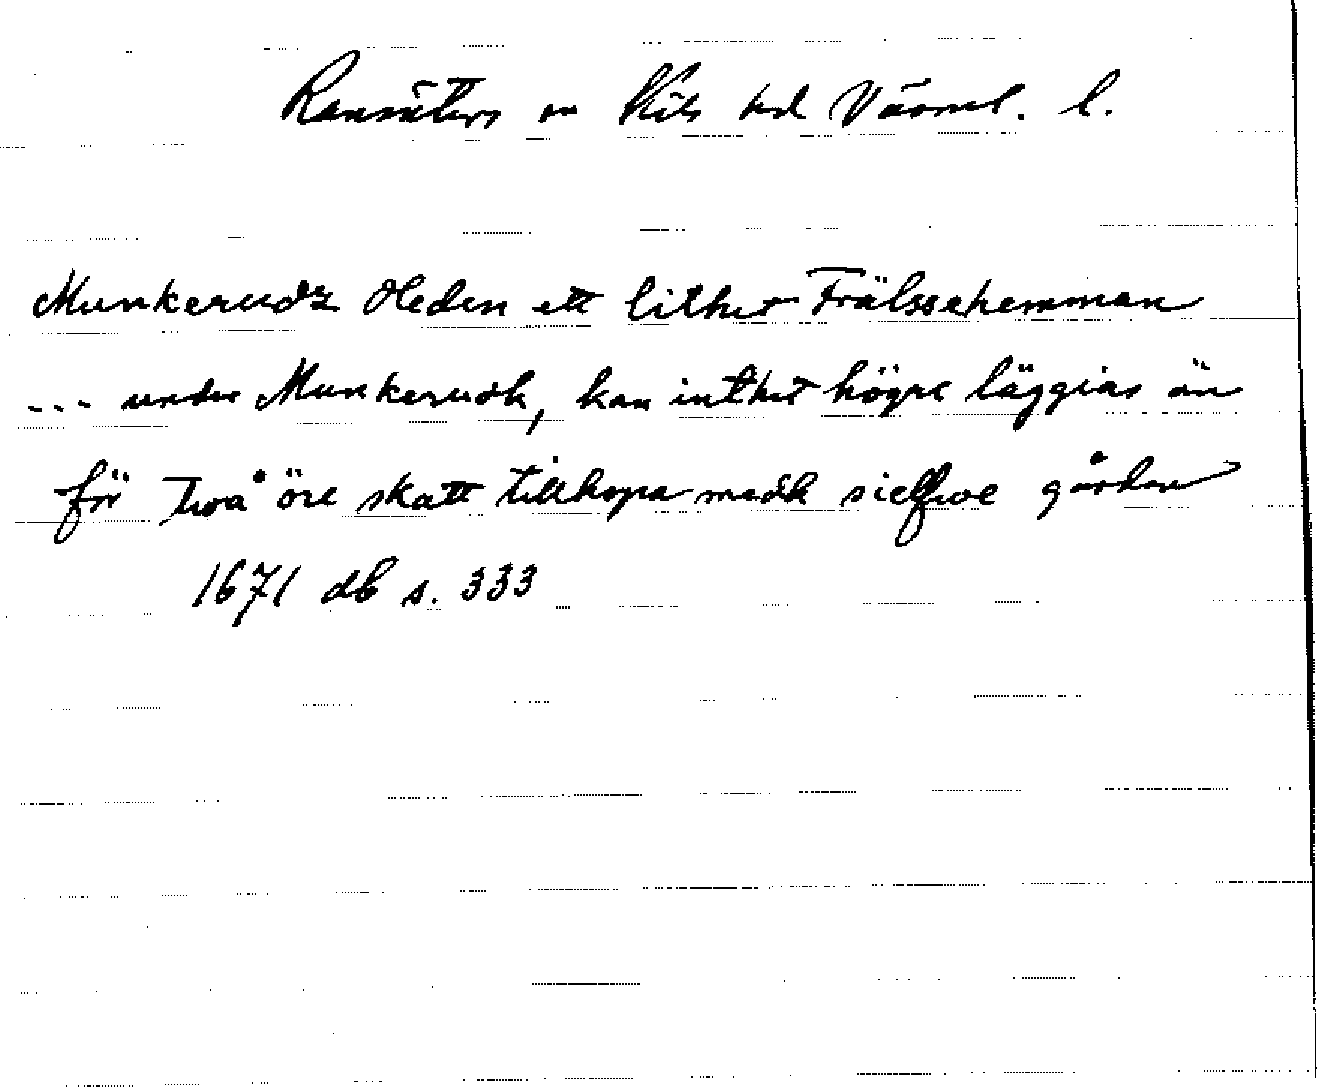 Ransäters sn Kils hd Värml. l.
Munkerudz Heden ett lithet Frälssehemman
--- under Munkerudh, kan inthet högre läggias än
för twå öre skatt tillhopa medh sielfwe gården
1671 db s. 333